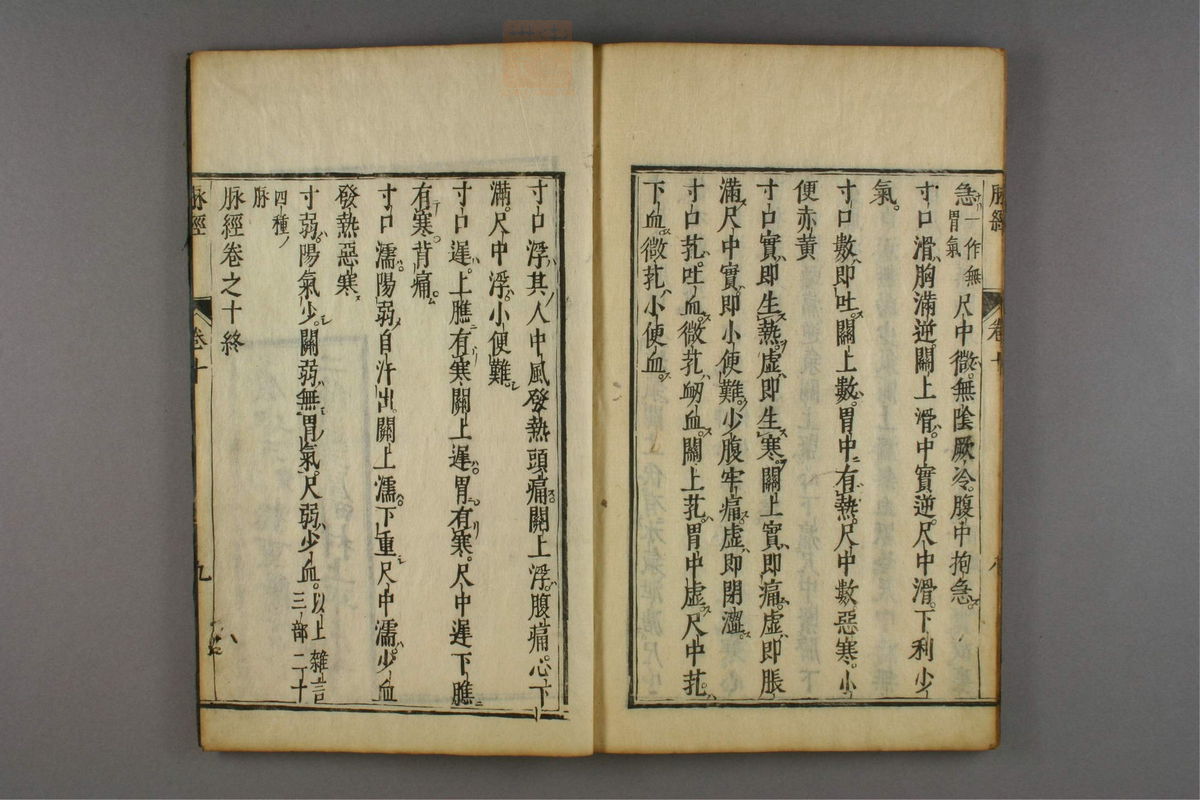 脉經 卷十 八
急一作無胃氣尺中微無陰厥冷腹中拘急
寸口滑胸滿逆關上滑中實逆尺中滑下利少
氣
寸口數即吐關上數胃中有熱尺中數惡寒小
便赤黄
寸口實即生熱虚即生寒關上實即痛虚即脹
滿尺中實即小便難少腹牢痛虚即閉澀
寸口芤吐血微芤衂血關上芤胃中虚尺中芤
下血微芤小便血
寸口浮其人中風發熱頭痛關上浮腹痛心下
滿尺中浮小便難
寸口遲上膲有寒關上遲胃有寒尺中遲下膲
有寒背痛
寸口濡陽弱自汗出關上濡下重尺中濡少血
發熱惡寒
寸弱陽氣少關弱無胃氣尺弱少血以上雜言三部二十
四種脉
脉經卷之十終
脉經 卷十 九